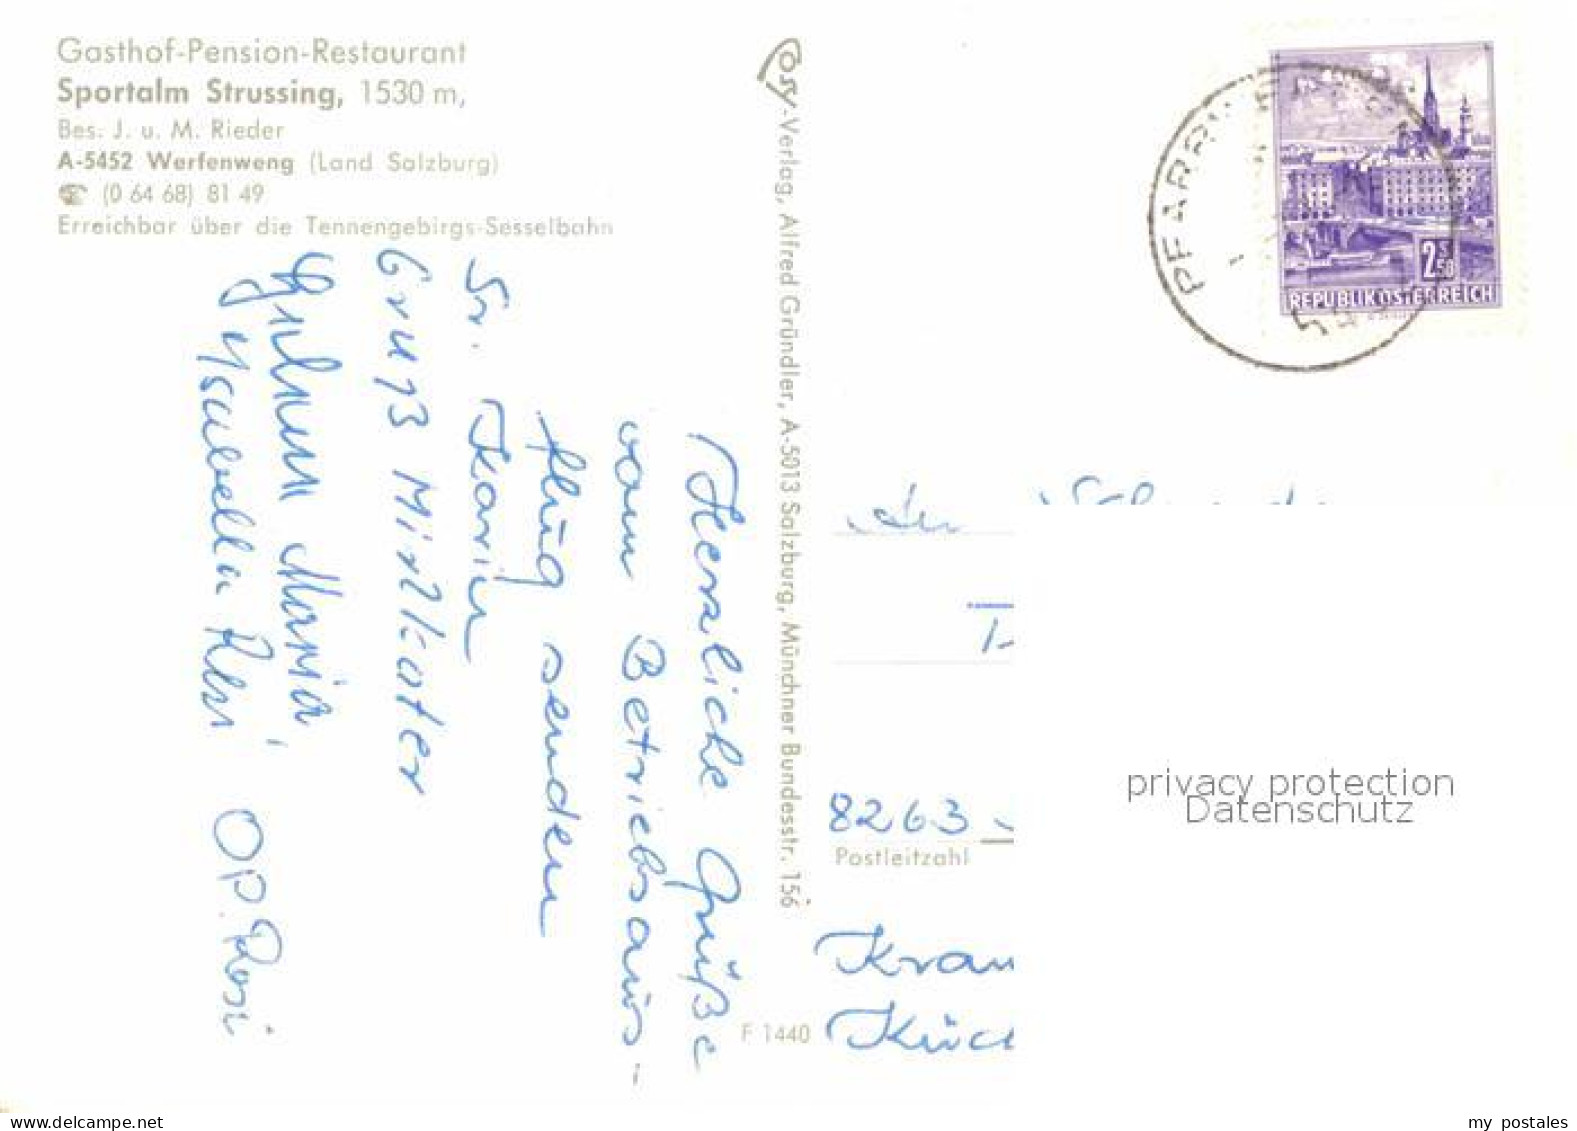 Gasthof-Pension-Restaurant
Sportalm Strussing, 1530 m,
Bes. J. u. M. Rieder
A-5452 Werfenweng (Land Salzburg)
☎ (0 64 68) 81 49
Erreichbar über die Tennengebirgs-Sesselbahn
Herzliche Grüße
vom Betriebsaus-
flug senden
Sr. Karin
Gruß Mirlkater
Maria,
OP. Rosi
Cosy-Verlag, Alfred Gründler, A-5013 Salzburg, Münchner Bundesstr. 156
F 1440
2 S 50
REPUBLIK ÖSTERREICH
PFARRWERFEN
5452
8263
Postleitzahl
Kran
Küc
privacy protection
Datenschutz
www.delcampe.net
my postales